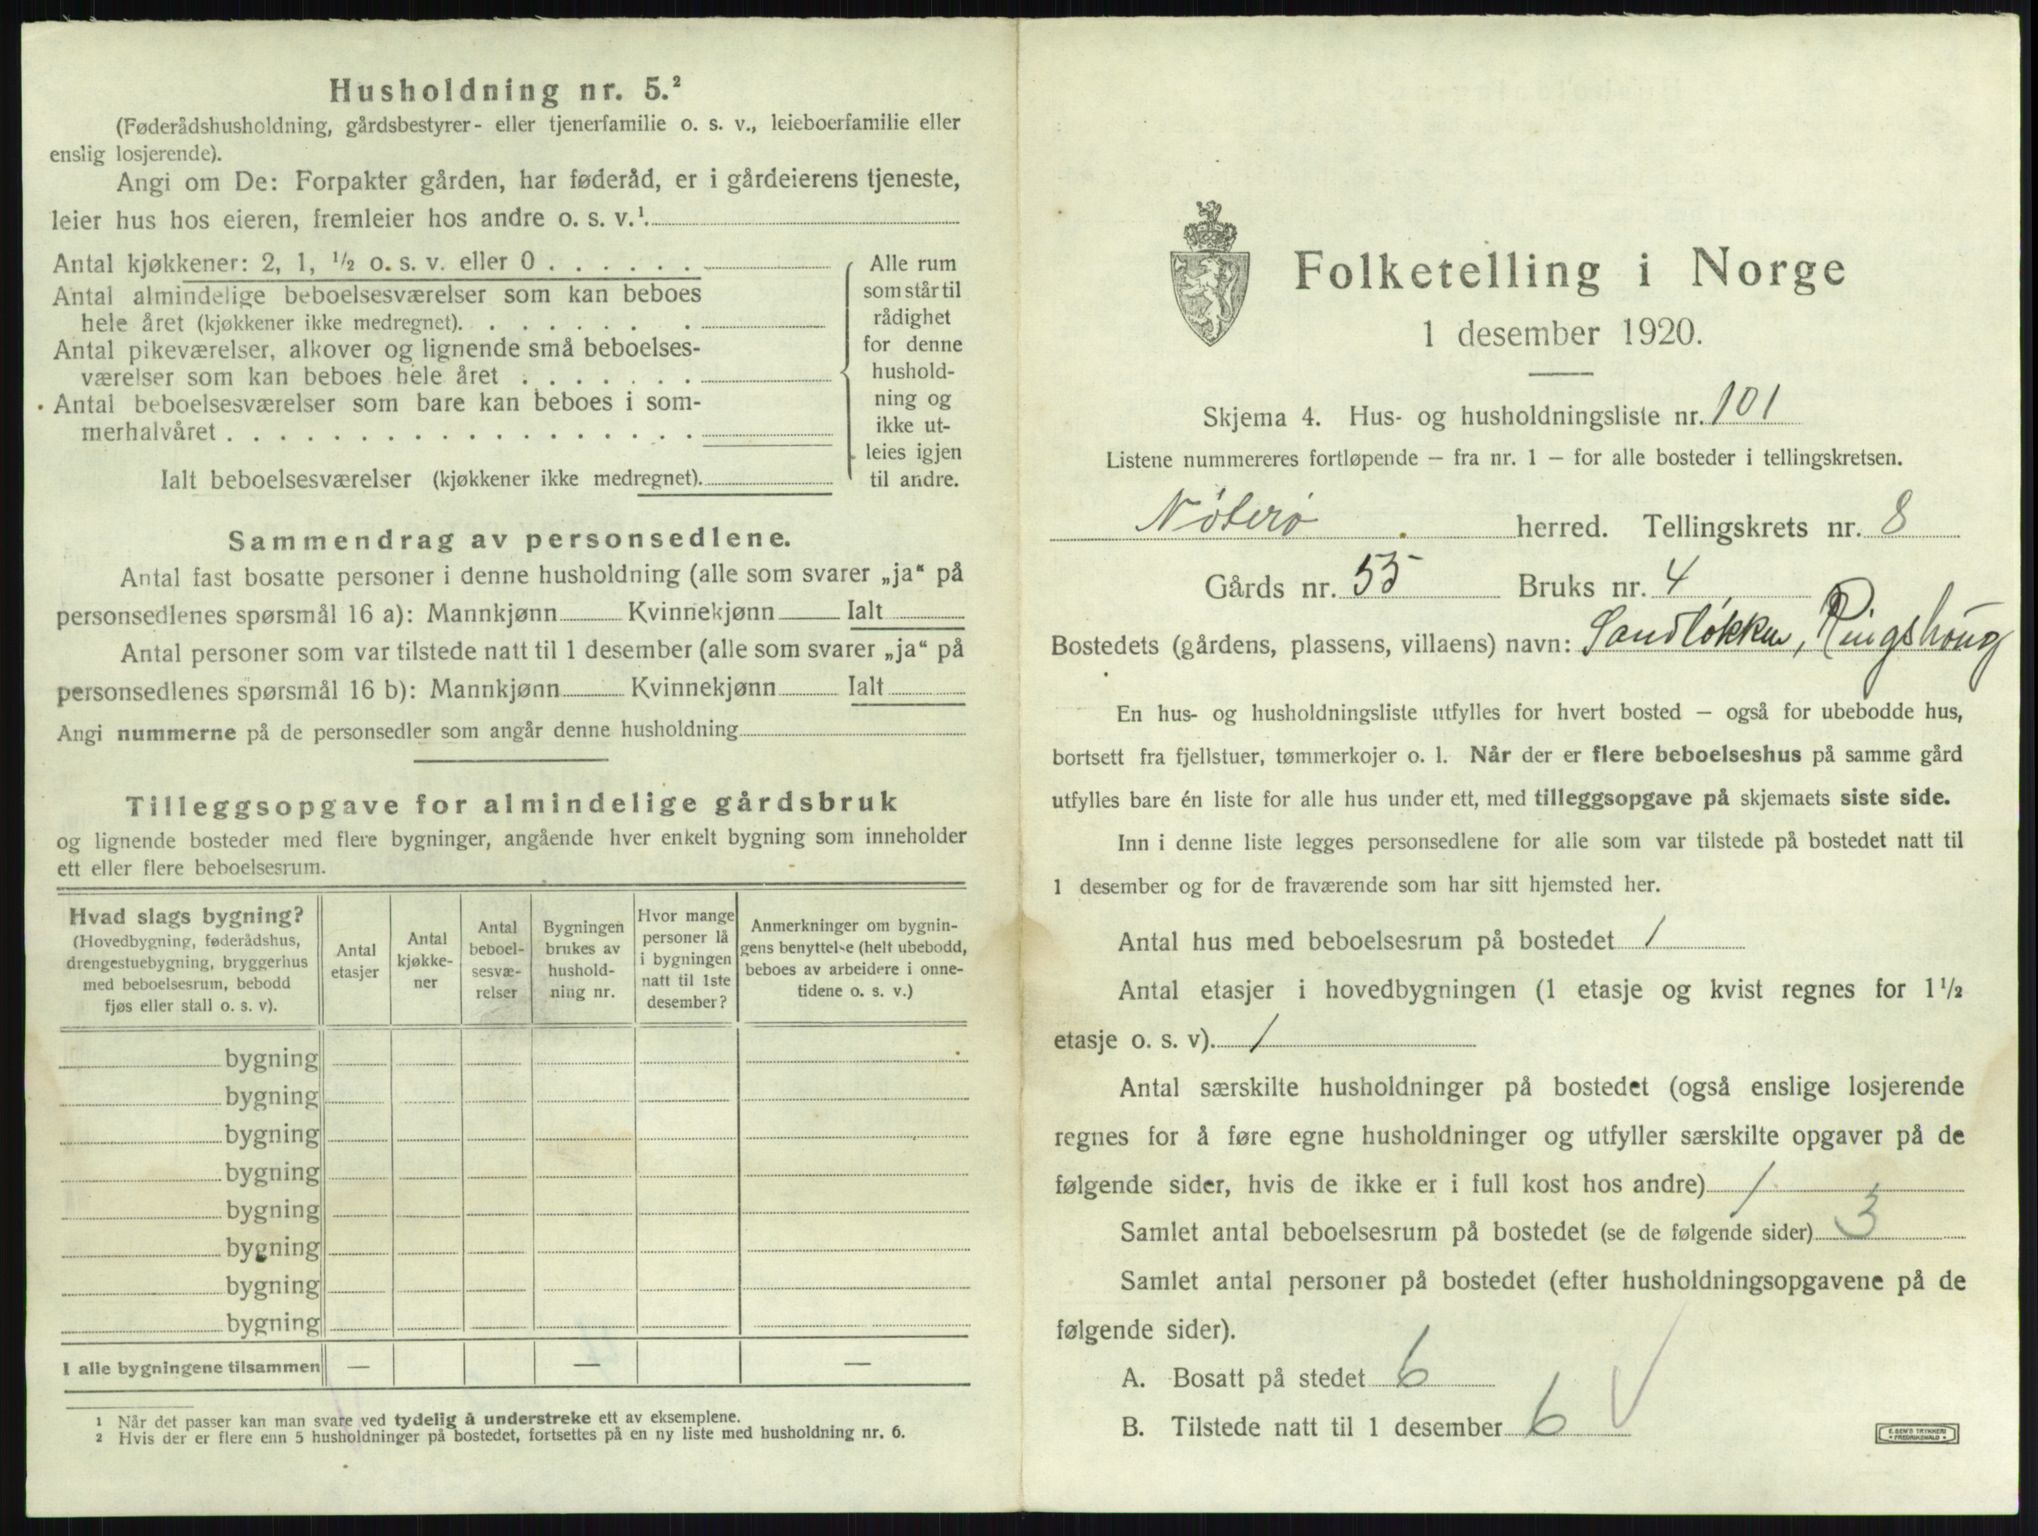 Husholdning nr. 5.²
(Føderådshusholdning, gårdsbestyrer- eller tjenerfamilie o. s. v., leieboerfamilie eller
enslig losjerende).
Angi om De: Forpakter gården, har føderåd, er i gårdeierens tjeneste,
leier hus hos eieren, fremleier hos andre o. s. v.¹
Antal kjøkkener: 2, 1, ½ o. s. v. eller 0 . . . . . .
Antal almindelige beboelsesværelser som kan beboes
hele året (kjøkkener ikke medregnet). . . . . . . .
Antal pikeværelser, alkover og lignende små beboelses-
værelser som kan beboes hele året . . . . . . .
Antal beboelsesværelser som bare kan beboes i som-
merhalvåret . . . . . . . . . . . . . . . . . .
Ialt beboelsesværelser (kjøkkener ikke medregnet).
Alle rum
som står til
rådighet
for denne
hushold-
ning og
ikke ut-
leies igjen
til andre.
Sammendrag av personsedlene.
Antal fast bosatte personer i denne husholdning (alle som svarer „ja“ på
personsedlenes spørsmål 16 a): Mannkjønn Kvinnekjønn Ialt
Antal personer som var tilstede natt til 1 desember (alle som svarer „ja“ på
personsedlenes spørsmål 16 b): Mannkjønn Kvinnekjønn Ialt
Angi nummerne på de personsedler som angår denne husholdning
Tilleggsopgave for almindelige gårdsbruk
og lignende bosteder med flere bygninger, angående hver enkelt bygning som inneholder
ett eller flere beboelsesrum.
Hvad slags bygning?
(Hovedbygning, føderådshus,
drengestuebygning, bryggerhus
med beboelsesrum, bebodd
fjøs eller stall o. s. v).
Antal
etasjer
Antal
kjøkke-
ner
Antal
beboel-
sesvæ-
relser
Bygningen
brukes av
hushold-
ning nr.
Hvor mange
personer lå
i bygningen
natt til 1ste
desember?
Anmerkninger om bygnin-
gens benyttelse (helt ubebodd,
beboes av arbeidere i onne-
tidene o. s. v.)
bygning
bygning
bygning
bygning
bygning
bygning
bygning
bygning
I alle bygningene tilsammen — — —
¹ Når det passer kan man svare ved tydelig å understreke ett av eksemplene.
² Hvis der er flere enn 5 husholdninger på bostedet, fortsettes på en ny liste med husholdning nr. 6.
Folketelling i Norge
1 desember 1920.
Skjema 4. Hus- og husholdningsliste nr. 101
Listene nummereres fortløpende — fra nr. 1 — for alle bosteder i tellingskretsen.
Nøterø herred. Tellingskrets nr. 8
Gårds nr. 55 Bruks nr. 4
Bostedets (gårdens, plassens, villaens) navn: Sandløkken, Ringshoug
En hus- og husholdningsliste utfylles for hvert bosted — også for ubebodde hus,
bortsett fra fjellstuer, tømmerkojer o. l. Når der er flere beboelseshus på samme gård
utfylles bare én liste for alle hus under ett, med tilleggsopgave på skjemaets siste side.
Inn i denne liste legges personsedlene for alle som var tilstede på bostedet natt til
1 desember og for de fraværende som har sitt hjemsted her.
Antal hus med beboelsesrum på bostedet 1
Antal etasjer i hovedbygningen (1 etasje og kvist regnes for 1½
etasje o. s. v). 1
Antal særskilte husholdninger på bostedet (også enslige losjerende
regnes for å føre egne husholdninger og utfyller særskilte opgaver på de
følgende sider, hvis de ikke er i full kost hos andre) 1
Samlet antal beboelsesrum på bostedet (se de følgende sider) 3
Samlet antal personer på bostedet (efter husholdningsopgavene på de
følgende sider).
A. Bosatt på stedet 6
B. Tilstede natt til 1 desember 6
E. SEM'S TRYKKERI
FREDRIKSHALD